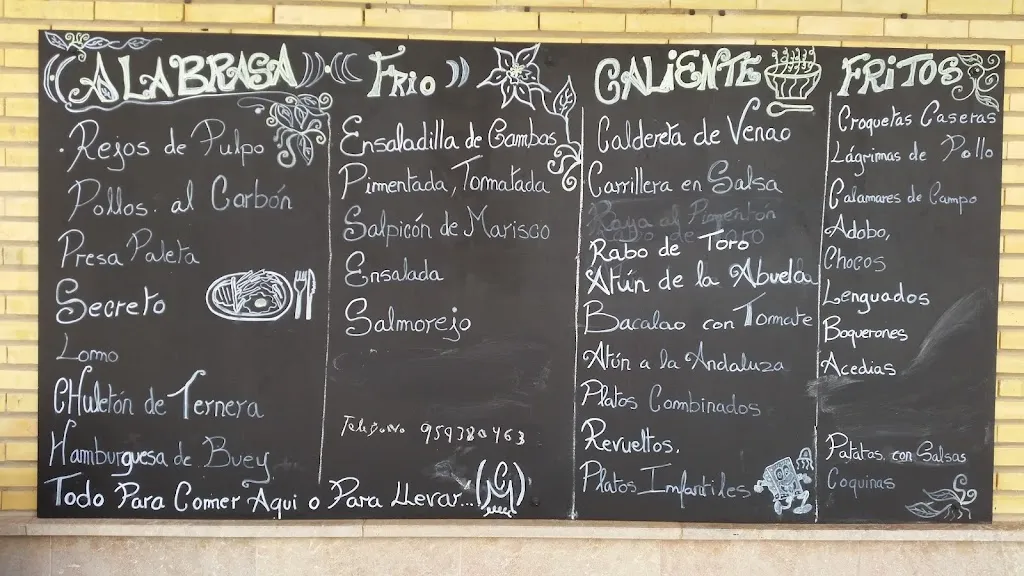 A LA BRASA
Rejos de Pulpo
Pollos. al Carbón
Presa Paleta
Secreto
Lomo
CHuletón de Ternera
Hamburguesa de Buey
Todo Para Comer Aqui o Para Llevar...
Frio
Ensaladilla de Gambas
Pimentada, Tomatada
Salpicón de Marisco
Ensalada
Salmorejo
Telefono 959380463
CALiENTE
Caldereta de Venao
Carrillera en Salsa
Raya al Pimentón
Rabo de Toro
Atún de la Abuela
Bacalao con Tomate
Atún a la Andaluza
Platos Combinados
Revueltos.
Platos Imfantiles
FRiTOS
Croquetas Caseras
Lágrimas de Pollo
Calamares de Campo
Adobo,
Chocos
Lenguados
Boquerones
Acedias
Patatas con Salsas
Coquinas